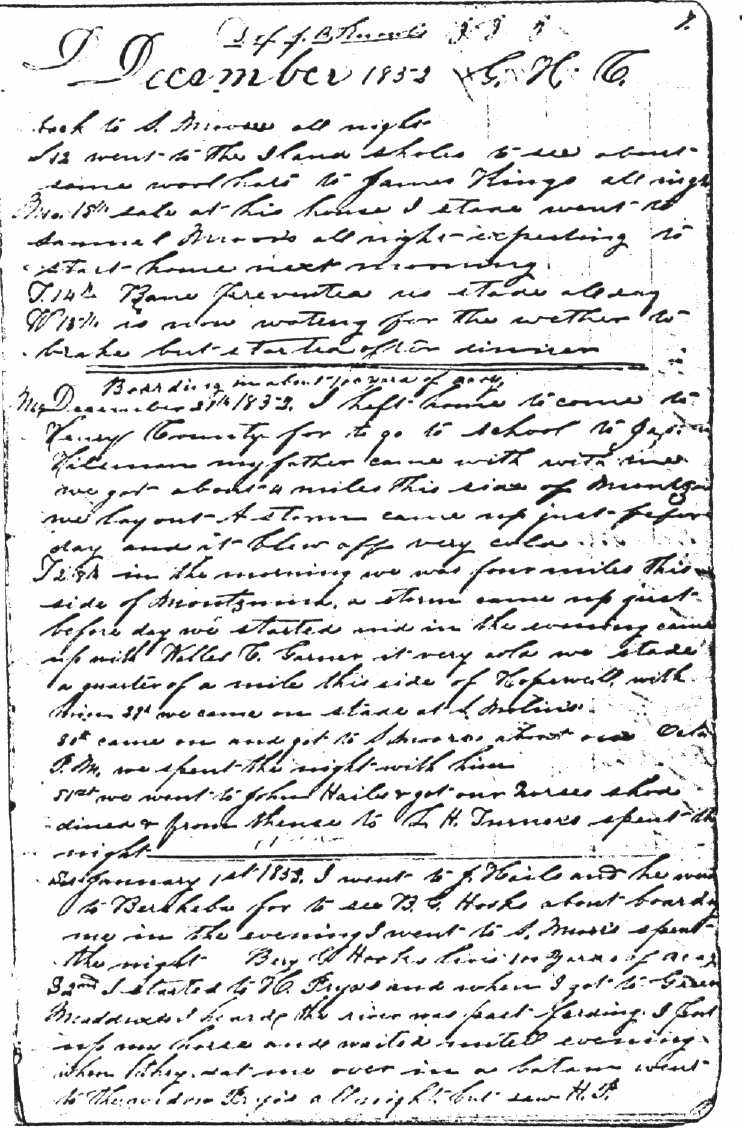 7.
December 1852 G. H. T.
back to S. Moores all night
S 12 went to the Iland sholes to see about
some wool hats to James Kings all night
Mo. 13th sale at his house I stade went to
Samuel Moores all night expecting to
start home next morning.
T. 14th Rane preventea us stade all day
W 15th is now wating for the wether to
brake but started after dinner
Boarding in about 100 yards of
December 27th 1852. I left home to come to
Henry County for to go to school to
my father came with with me
we got about 4 miles this side of
we lay out A storm came up just before
day and it blew off very cold
T 28th in the morning we was four miles this
side of Montzuma, a storm came up just
before day we started and in the evening came
up with Willes T. Garner it very cold we stade
a quarter of a mile this side of Hopewell with
him 29th we came on stade at S
30th came on and got to S Moores about one Oclo
P.M. we spent the night with him
31st we went to John Hailes & got our horses shod
dined & from thense to L. H. Turners spent the
night
January 1st 1853. I went to J. Hails and he went
to Bersheba for to see B. G. Hooks about boarding
me in the evening I went to S. Moores spent
the night Hooks lives 100 yards of
S 2nd I started to H. Pryes and when I got to Green
I heard the river was past fording. I put
up my horse and waited untell evening.
when they set me over in a batau went
to the widow Pryes all night. but saw H. P.